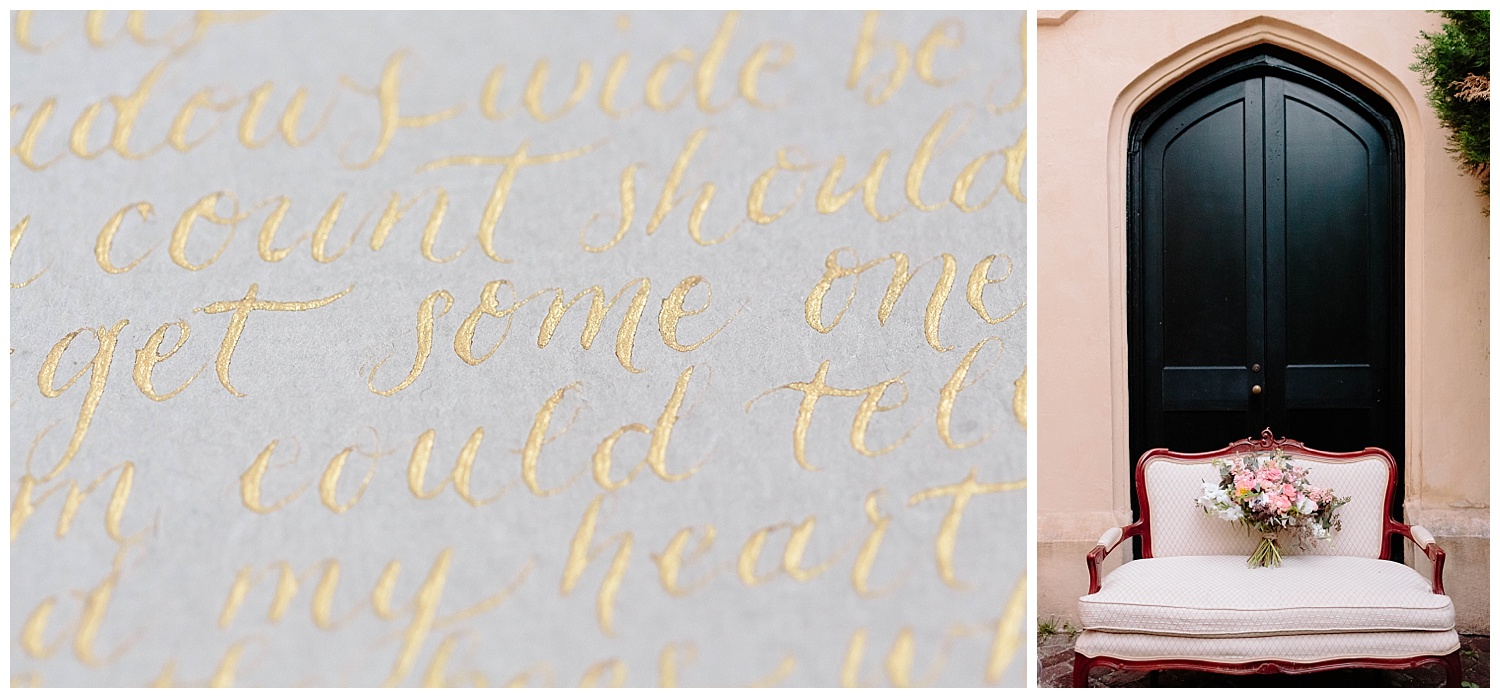 ndows wide be
count should
get some one
m could tell
d my heart it